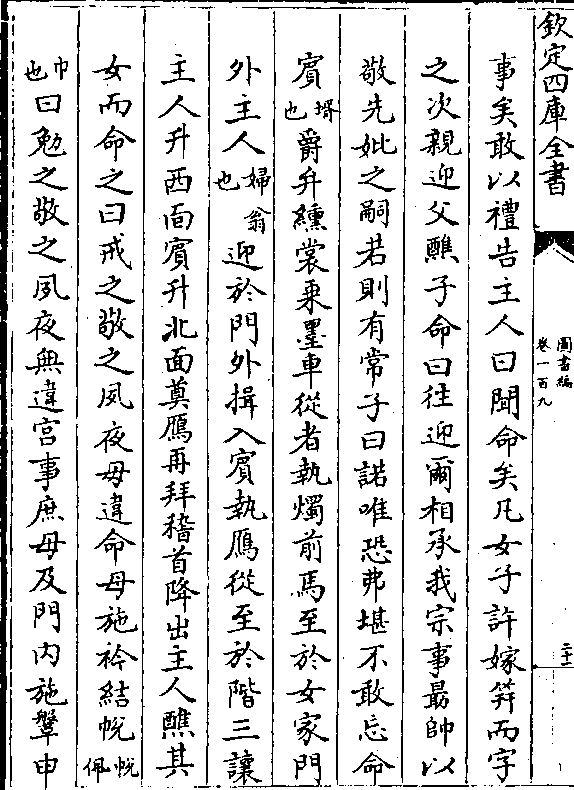 欽定四庫全書
圖書編
卷一百九
二十二
事矣敢以禮告主人曰聞命矣凡女子許嫁笄而字
之次親迎父醮子命曰往迎爾相承我宗事勗帥以
敬先妣之嗣若則有常子曰諾唯恐弗堪不敢忘命
賓壻也爵弁纁裳乗墨車從者執燭前馬至於女家門
外主人婦翁也迎於門外揖入賓執鴈從至於階三讓
主人升西面賓升北面奠鴈再拜稽首降出主人醮其
女而命之曰戒之敬之夙夜毋違命母施衿結帨帨佩
巾也曰勉之敬之夙夜無違宫事庶母及門内施鞶申